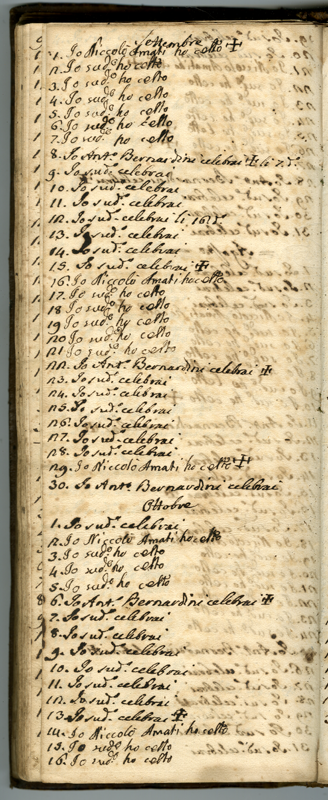 Settembre
1. Io Niccolò Amati ho celto ✠
2. Io sudo. ho celto
3. Io sudo. ho celto
4. Io sudo. ho celto
5. Io sudo. ho celto
6. Io sudo. ho celto
7. Io sudo. ho celto
8. Io Anto. Bernardini celebrai ✠ li 7 do.
9. Io sudo. celebrai
10. Io sudo. celebrai
11. Io sudo. celebrai
12. Io sudo. celebrai li 16 do.
13. Io sudo. celebrai
14. Io sudo. celebrai
15. Io sudo. celebrai ✠
16. Io Niccolò Amati ho celto
17. Io sudo. ho celto
18 Io sudo. ho celto
19 Io sudo. ho celto
20 Io sudo. ho celto
21 Io sudo. ho celto
22. Io Anto. Bernardini celebrai ✠
23. Io sudo. celebrai
24. Io sudo. celebrai
25. Io sudo. celebrai
26. Io sudo. celebrai
27. Io sudo. celebrai
28. Io sudo. celebrai
29. Io Niccolò Amati ho celto ✠
30. Io Anto. Bernardini celebrai
Ottobre
1. Io sudo. celebrai
2. Io Niccolò Amati ho celto
3. Io sudo. ho celto
4. Io sudo. ho celto
5. Io sudo. ho celto
6. Io Anto. Bernardini celebrai ✠
7. Io sudo. celebrai
8. Io sudo. celebrai
9. Io sudo. celebrai
10. Io sudo. celebrai
11. Io sudo. celebrai
12. Io sudo. celebrai
13. Io sudo. celebrai ✠
14. Io Niccolò Amati ho celto
15. Io sudo. ho celto
16. Io sudo. ho celto